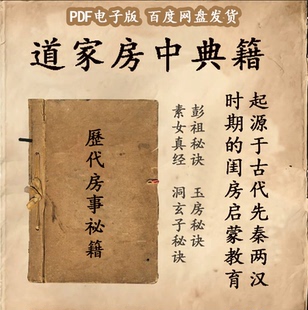 PDF电子版 百度网盘发货
道家房中典籍
歷代房事祕籍
起源于古代先秦两汉
时期的闺房启蒙教育
彭祖秘诀 玉房秘诀
素女真经 洞玄子秘诀